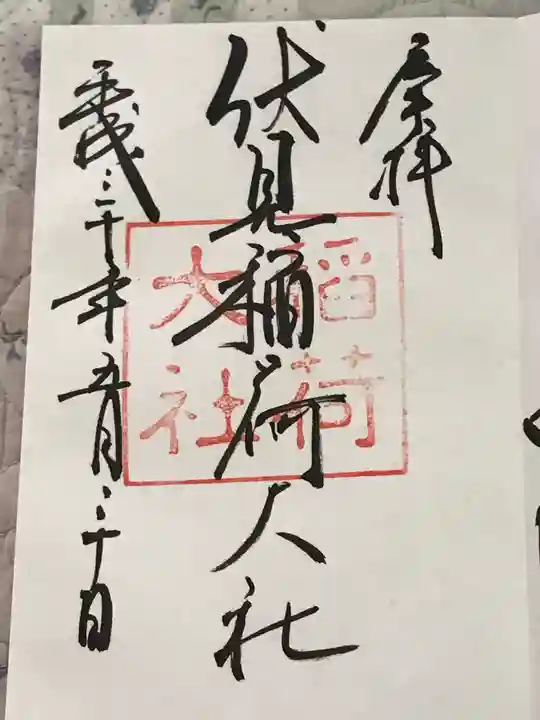 奉拝
伏見稲荷大社
平成三十年五月三十日
稲荷
大社